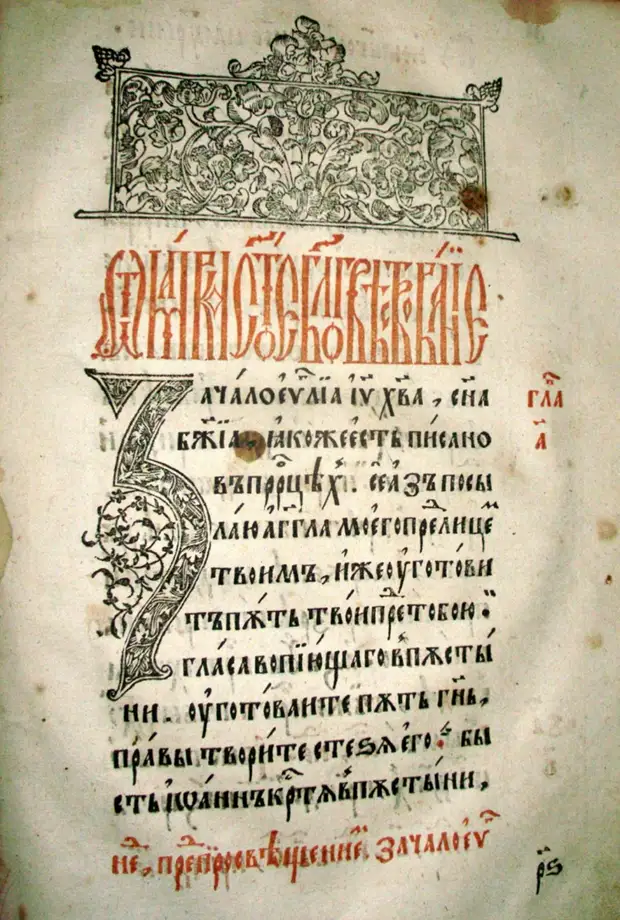 Ѿ МАРКА СТ҃ОЕ БЛГ҃ОВѢСТВОВАНЇЕ
Зачало еѵⷢ҇лїа іѵ҃ хв҃а, сн҃а
гла҃
а҃
бж҃їа, ꙗкоже есть писано
въ прⷪ҇рцѣⷯ. се азъ посы
лаю аг҃гла моего преⷣ лицеⷨ
твоимъ, иже оуготови
тъ пѫть твои преⷣ тобою
гласа вопїющаго в пѫсты
ни. оуготоваите пѫть гн҃ь,
правы творите стеѕѧ его. бы
сть іѡаннъ крⷭ҇тѧ в пѫстыни,
неⷣ, преⷣ просвѣщенїеⷨ. зачало еѵⷢ҇
рѕ҃